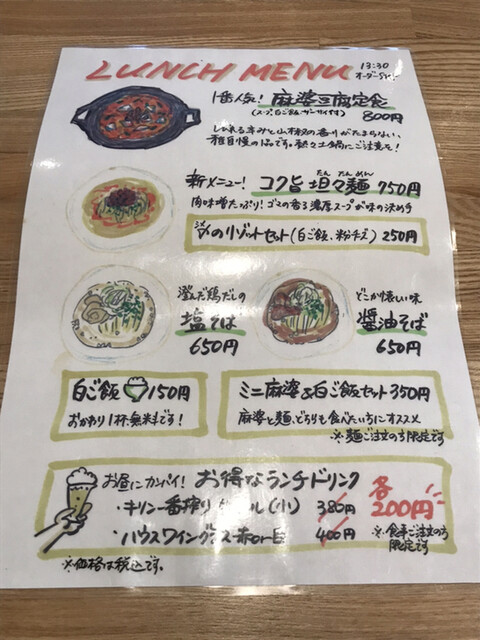 LUNCH MENU
13:30
オーダーストップ
1番人気! 麻婆豆腐定食
(スープ、白ご飯、ザーサイ付き)
800円
しびれる辛みと山椒の香りがたまらない、
種自慢の1品です。熱々土鍋にご注意を!
新メニュー! コク旨 坦々麺 750円
たん たん めん
肉味噌たっぷり! ゴマの香る濃厚スープが味の決め手
〆のリゾットセット(白ご飯、粉チーズ) 250円
澄んだ鶏だしの
塩そば
650円
どこか懐しい味
醤油そば
650円
白ご飯 150円
おかわり1杯無料です!
ミニ麻婆&白ご飯セット 350円
麻婆と麺、どちらも食べたい方にオススメ
※麺ご注文の方限定です
お昼にカンパイ! お得なランチドリンク
・キリン一番搾り ビール(小) 380円
・ハウスワイングラス 赤or白 400円
各
200円
※食事ご注文の方
限定です
※価格は税込です。